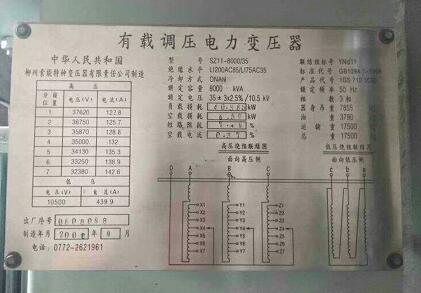 有载调压电力变压器
中华人民共和国
柳州索能特种变压器有限公司制造
分接位置 高压
电压(V) 电流(A)
1 37620 122.8
2 36750 125.7
3 35870 128.8
4 35000 132
5 34130 135.3
6 33250 138.9
7 32380 142.6
低压
电压(V) 电流(A)
10500 439.9
出厂序号
制造年月 年 月
电话: 0772-2621961
型号 SZ11-8000/35
绝缘水平 LI200AC85/LI75AC35
冷却方式 ONAN
额定容量 8000 kVA
额定电压 35±3x2.5%/10.5 kV
负载损耗
空载损耗
短路阻抗
空载电流
联结组标号 YNd11
标准代号
产品代号
额定频率 50 Hz
相数 3 相
器身重 7855
油重 3790
运输重 17500
总重 17500
高压绕组联结图 低压绕组联结图
面向高压侧 面向低压侧
O A B C c b a
X1 Y1 Z1
X2 Y2 Z2
X3 Y3 Z3
X4 Y4 Z4
X5 Y5 Z5
X6 Y6 Z6
X7 Y7 Z7